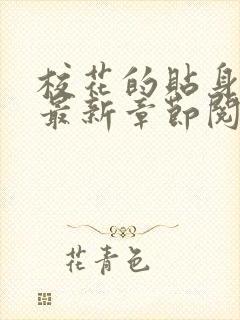 校花的贴身
最新章节阅
花青色